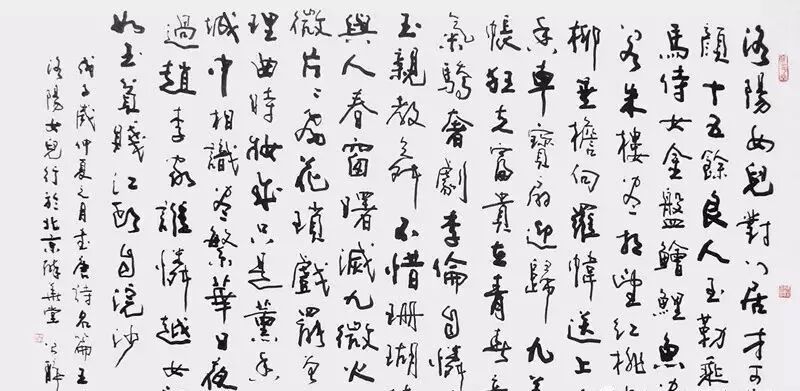 洛陽女兒對門居才可
顏十五餘良人玉勒乘
馬侍女金盤鱠鯉魚
閣朱樓盡相望紅桃
柳垂檐向羅幃送上
香車寶扇迎歸九
帳狂夫富貴在青春
氣驕奢劇季倫自憐
玉親教舞不惜珊瑚
與人春窗曙滅九微火
微片々飛花瑣戲罷曾
理曲時妝成只是薰香
城中相識盡繁華日夜
過趙李家誰憐越女
如玉貧賤江頭自浣沙
戊子歲仲夏之月書唐詩名篇王
洛陽女兒行於北京堂